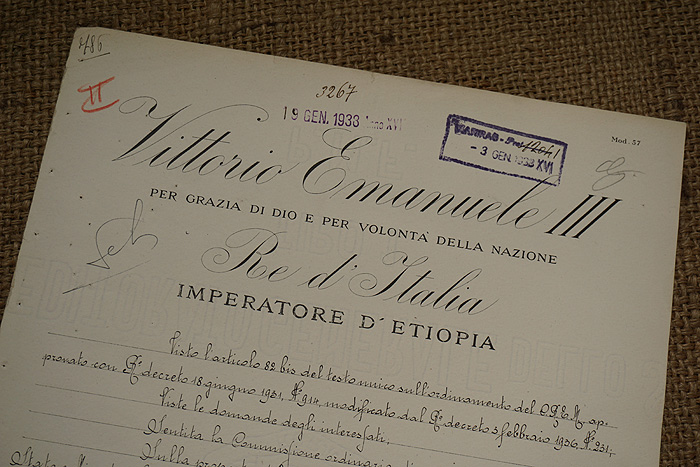 486
II
3267
19 GEN. 1938 Anno XVI
- 3 GEN. 1938 XVI
Mod. 57
Vittorio Emanuele III
PER GRAZIA DI DIO E PER VOLONTÀ DELLA NAZIONE
Re d'Italia
IMPERATORE D'ETIOPIA
Visto l'articolo 82 bis del testo unico sull'ordinamento del C.R.E.M. ap-
provato con R° decreto 18 giugno 1931, N° 914, modificato dal R° decreto 3 febbraio 1936, N° 251,
Viste le domande degli interessati,
Sentita la Commissione ordinaria
Sulla